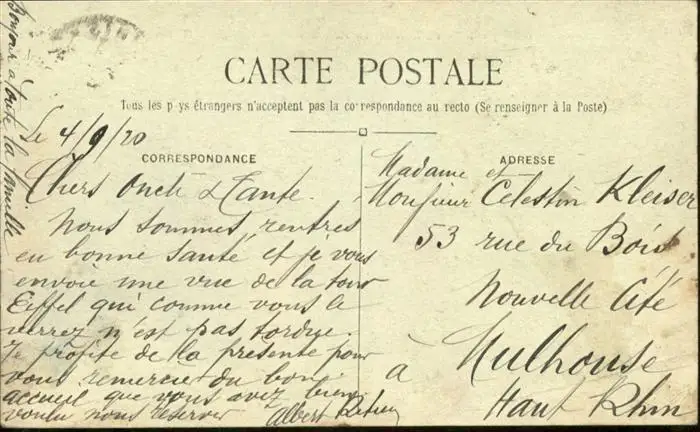 Bonjour à toute la famille
CARTE POSTALE
Tous les pays étrangers n'acceptent pas la correspondance au recto (Se renseigner à la Poste)
Le 4/9/20
CORRESPONDANCE
Chers Oncle & Tante.
Nous sommes rentrés
en bonne santé et je vous
envoie une vue de la tour
Eiffel qui comme vous le
verrez n'est pas tordue.
Je profite de la présente pour
vous remercier du bon
accueil que vous avez bien
voulu nous réserver
Albert
ADRESSE
Madame et
Monsieur Célestin Kleiser
53 rue du Bois
Nouvelle Cité
à Mulhouse
Haut Rhin